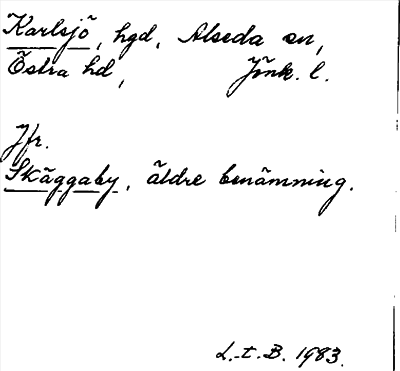 Karlsjö, hgd, Alseda sn,
Östra hd, Jönk. l.
Jfr.
Skäggaby, äldre benämning.
L.-t.B. 1983.